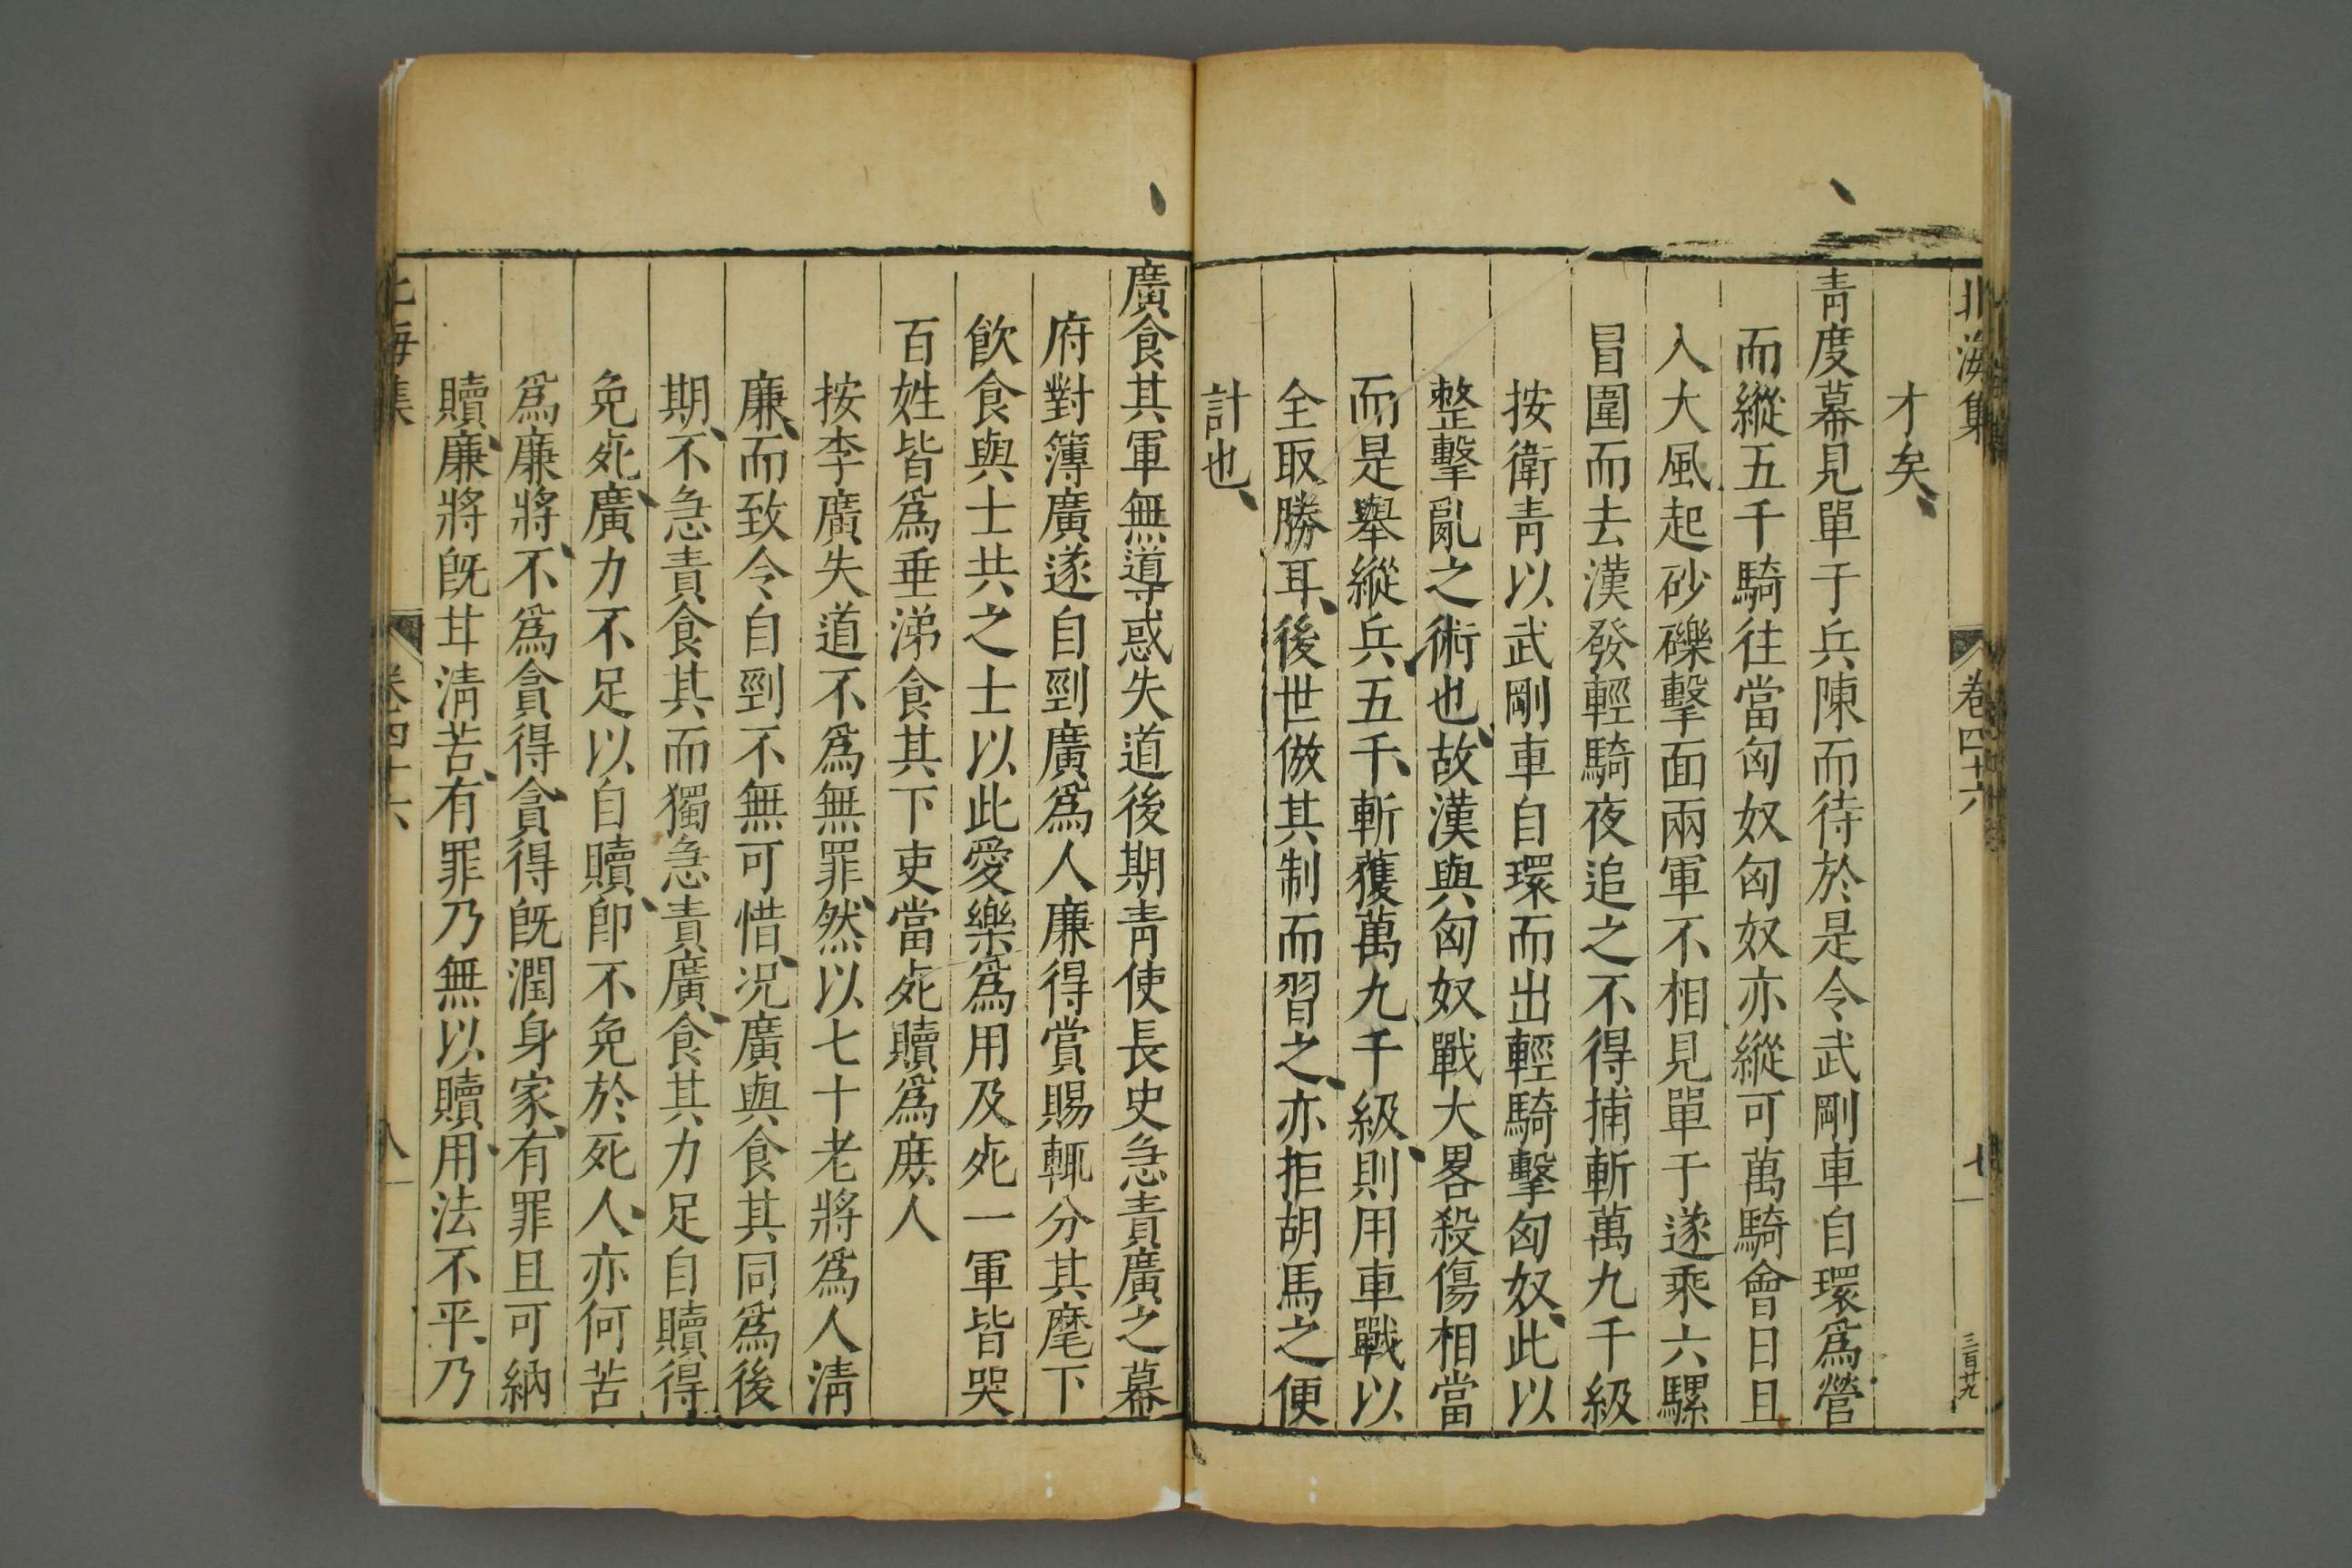 北海集 卷四十六 七 三百廿九
才矣、
青度幕見單于兵陳而待於是令武剛車自環爲營
而縱五千騎往當匈奴匈奴亦縱可萬騎會日且
入大風起砂礫擊面兩軍不相見單于遂乘六騾
冒圍而去漢發輕騎夜追之不得捕斬萬九千級
按衛青以武剛車自環而出輕騎擊匈奴、此以
整擊亂之術也、故漢與匈奴戰大畧殺傷相當
而是舉縱兵、五千、斬獲萬九千級、則用車戰以
全取勝耳、後世倣其制而習之、亦拒胡馬之便
計也、
廣食其軍無導惑失道後期青使長史急責廣之幕
府對簿廣遂自剄廣爲人廉得賞賜輒分其麾下
飲食與士共之士以此愛樂爲用及死一軍皆哭
百姓皆爲垂涕食其下吏當死贖爲庶人
按李廣失道不爲無罪、然以七十老將爲人清
廉、而致令自剄不無可惜、况廣與食其同爲後
期、不急責食其而獨急責廣、食其力足自贖得
免死、廣力不足以自贖、卽不免於死人、亦何苦
爲廉將、不爲貪得貪得旣潤身家、有罪且可納
贖、廉將旣甘清苦、有罪乃無以贖、用法不平、乃
北海集 卷四十六 八